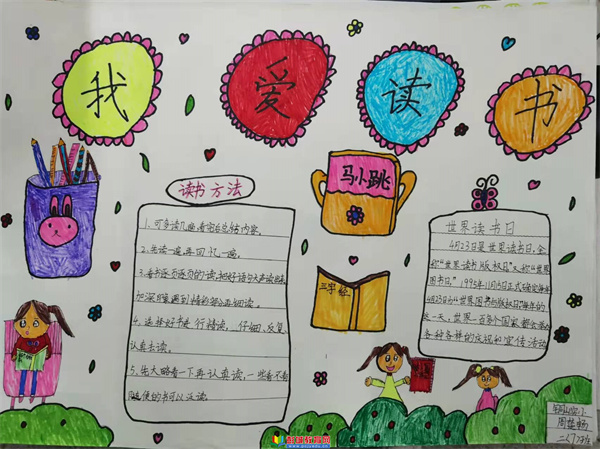 我爱读书
读书方法
1.可多读几遍看完后总结内容。
2.先读一遍再回忆一遍。
3.看书逐页逐页的读,把好语句大声读出来,
加深印象遇到精彩部分再细读。
4.选择好书进行精读,仔细,反复
认真去读。
5.先大略看一下再认真读,一些看不看
随便的书可以泛读。
马小跳
三字经
世界读书日
4月23日是世界读书日,全
称“世界读书版权日”又称“世界
图书日。”1995年11月5日正式确定每年
4月23日为“世界图书版权日”每年的
这一天,世界一百多个国家都会举办
各种各样的庆祝和宣传活动
周楚畅
二(7)班